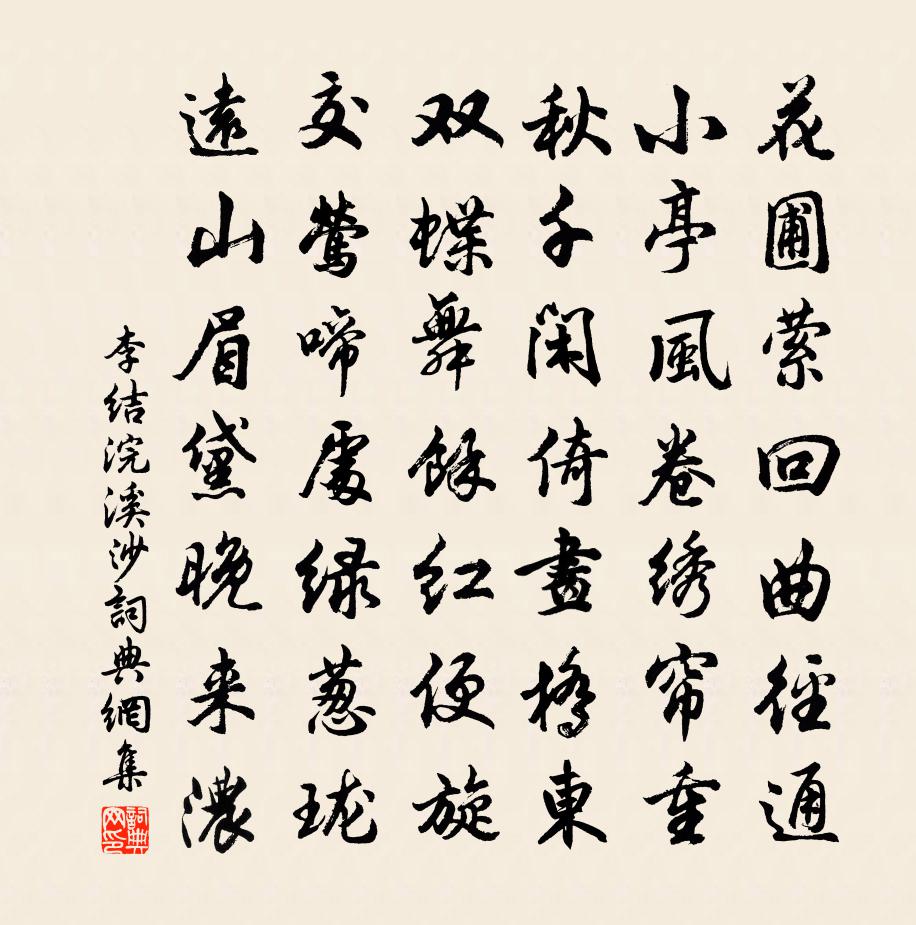 花圃萦回曲径通
小亭風卷绣帘重
秋千闲倚畫橋東
双蝶舞餘红便旋
交莺啼處绿葱珑
遠山眉黛晚来濃
李结浣溪沙詞典網集
詞典网印